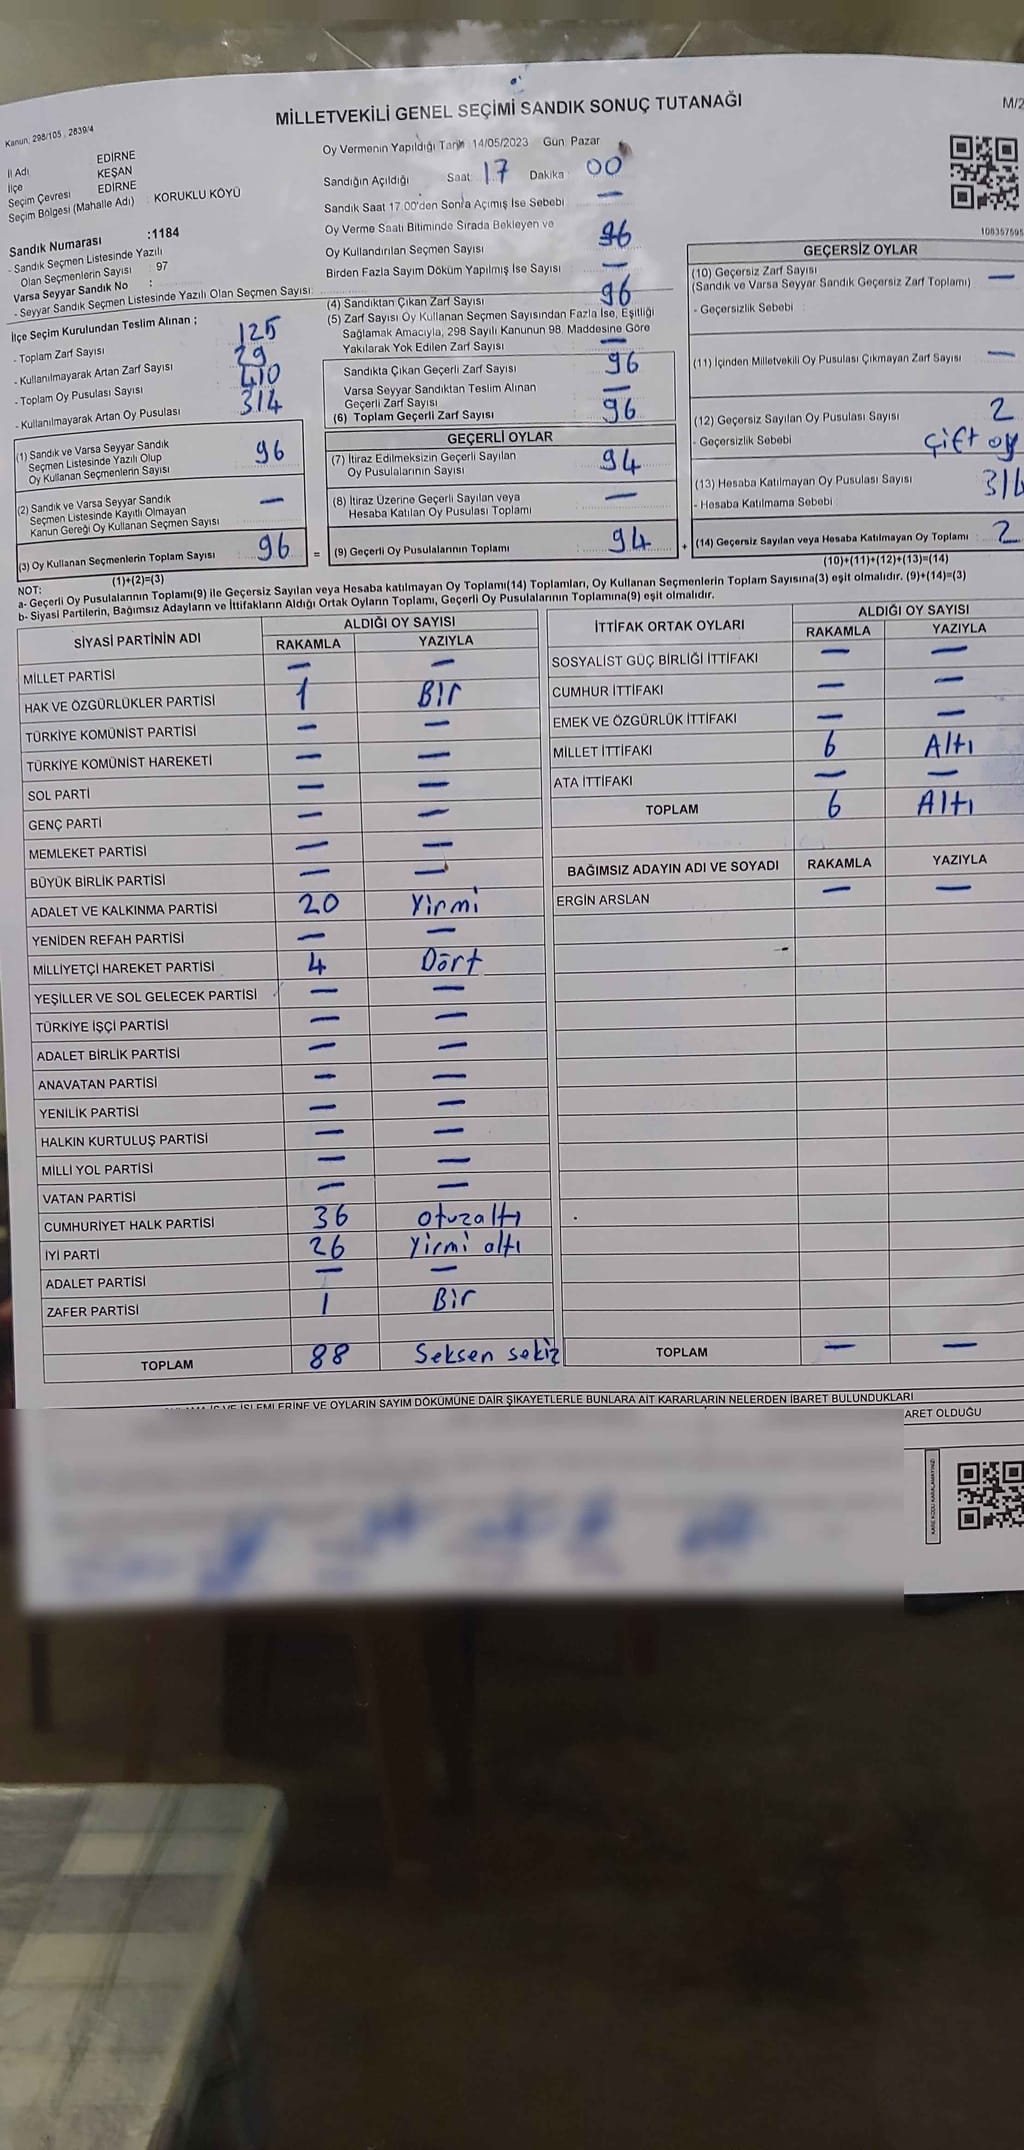 MİLLETVEKİLİ GENEL SEÇİMİ SANDIK SONUÇ TUTANAĞI
M/2
Kanun: 298/105 , 2839/4
İl Adı EDİRNE
İlçe KEŞAN
Seçim Çevresi EDİRNE
Seçim Bölgesi (Mahalle Adı) : KORUKLU KÖYÜ
Sandık Numarası :1184
- Sandık Seçmen Listesinde Yazılı
Olan Seçmenlerin Sayısı : 97
Varsa Seyyar Sandık No :
- Seyyar Sandık Seçmen Listesinde Yazılı Olan Seçmen Sayısı:
İlçe Seçim Kurulundan Teslim Alınan ;
- Toplam Zarf Sayısı 125
- Kullanılmayarak Artan Zarf Sayısı 29
- Toplam Oy Pusulası Sayısı 410
- Kullanılmayarak Artan Oy Pusulası 314
(1) Sandık ve Varsa Seyyar Sandık
Seçmen Listesinde Yazılı Olup
Oy Kullanan Seçmenlerin Sayısı 96
(2) Sandık ve Varsa Seyyar Sandık
Seçmen Listesinde Kayıtlı Olmayan
Kanun Gereği Oy Kullanan Seçmen Sayısı —
(3) Oy Kullanan Seçmenlerin Toplam Sayısı : 96 =
(1)+(2)=(3)
Oy Vermenin Yapıldığı Tarih 14/05/2023 Gün: Pazar
Sandığın Açıldığı Saat: 17 Dakika : 00
Sandık Saat 17.00'den Sonra Açımış İse Sebebi —
Oy Verme Saati Bitiminde Sırada Bekleyen ve
Oy Kullandırılan Seçmen Sayısı 96
Birden Fazla Sayım Döküm Yapılmış İse Sayısı —
(4) Sandıktan Çıkan Zarf Sayısı 96
(5) Zarf Sayısı Oy Kullanan Seçmen Sayısından Fazla İse, Eşitliği
Sağlamak Amacıyla, 298 Sayılı Kanunun 98. Maddesine Göre
Yakılarak Yok Edilen Zarf Sayısı —
Sandıkta Çıkan Geçerli Zarf Sayısı 96
Varsa Seyyar Sandıktan Teslim Alınan
Geçerli Zarf Sayısı —
(6) Toplam Geçerli Zarf Sayısı 96
GEÇERLİ OYLAR
(7) İtiraz Edilmeksizin Geçerli Sayılan
Oy Pusulalarının Sayısı 94
(8) İtiraz Üzerine Geçerli Sayılan veya
Hesaba Katılan Oy Pusulası Toplamı —
(9) Geçerli Oy Pusulalarının Toplamı : 94 +
108357595
GEÇERSİZ OYLAR
(10) Geçersiz Zarf Sayısı
(Sandık ve Varsa Seyyar Sandık Geçersiz Zarf Toplamı) —
- Geçersizlik Sebebi :
(11) İçinden Milletvekili Oy Pusulası Çıkmayan Zarf Sayısı —
(12) Geçersiz Sayılan Oy Pusulası Sayısı 2
- Geçersizlik Sebebi çift oy
(13) Hesaba Katılmayan Oy Pusulası Sayısı
- Hesaba Katılmama Sebebi
(14) Geçersiz Sayılan veya Hesaba Katılmayan Oy Toplamı : 2
(10)+(11)+(12)+(13)=(14)
NOT:
a- Geçerli Oy Pusulalarının Toplamı(9) ile Geçersiz Sayılan veya Hesaba katılmayan Oy Toplamı(14) Toplamları, Oy Kullanan Seçmenlerin Toplam Sayısına(3) eşit olmalıdır. (9)+(14)=(3)
b- Siyasi Partilerin, Bağımsız Adayların ve İttifakların Aldığı Ortak Oyların Toplamı, Geçerli Oy Pusulalarının Toplamına(9) eşit olmalıdır.
SİYASİ PARTİNİN ADI ALDIĞI OY SAYISI
RAKAMLA YAZIYLA
MİLLET PARTİSİ — —
HAK VE ÖZGÜRLÜKLER PARTİSİ 1 Bir
TÜRKİYE KOMÜNİST PARTİSİ — —
TÜRKİYE KOMÜNİST HAREKETİ — —
SOL PARTİ — —
GENÇ PARTİ — —
MEMLEKET PARTİSİ — —
BÜYÜK BİRLİK PARTİSİ — —
ADALET VE KALKINMA PARTİSİ 20 Yirmi
YENİDEN REFAH PARTİSİ — —
MİLLİYETÇİ HAREKET PARTİSİ 4 Dört
YEŞİLLER VE SOL GELECEK PARTİSİ — —
TÜRKİYE İŞÇİ PARTİSİ — —
ADALET BİRLİK PARTİSİ — —
ANAVATAN PARTİSİ — —
YENİLİK PARTİSİ — —
HALKIN KURTULUŞ PARTİSİ — —
MİLLİ YOL PARTİSİ — —
VATAN PARTİSİ — —
CUMHURİYET HALK PARTİSİ 36 otuzaltı
İYİ PARTİ 26 Yirmi altı
ADALET PARTİSİ — —
ZAFER PARTİSİ 1 Bir
TOPLAM 88 Seksen sekiz
İTTİFAK ORTAK OYLARI ALDIĞI OY SAYISI
RAKAMLA YAZIYLA
SOSYALİST GÜÇ BİRLİĞİ İTTİFAKI — —
CUMHUR İTTİFAKI — —
EMEK VE ÖZGÜRLÜK İTTİFAKI — —
MİLLET İTTİFAKI 6 Altı
ATA İTTİFAKI — —
TOPLAM 6 Altı
BAĞIMSIZ ADAYIN ADI VE SOYADI RAKAMLA YAZIYLA
ERGİN ARSLAN — —
TOPLAM — —
VE İŞLEMLERİNE VE OYLARIN SAYIM DÖKÜMÜNE DAİR ŞİKAYETLERLE BUNLARA AİT KARARLARIN NELERDEN İBARET BULUNDUKLARI
ARET OLDUĞU
KARE KODU KARALAMAYINIZ!